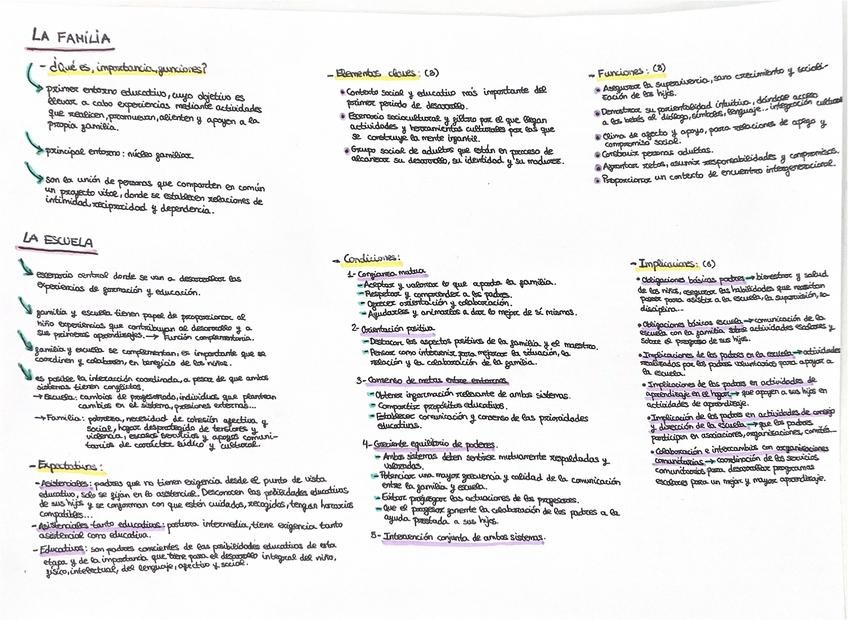 LA FAMILIA
- ¿Qué es, importancia, funciones?
primer entorno educativo, cuyo objetivo es
llevar a cabo experiencias mediante actividades
que realicen, promuevan, alienten y apoyen a la
propia familia.
principal entorno: núcleo familiar.
son la unión de personas que comparten en común
un proyecto vital, donde se establecen relaciones de
intimidad, reciprocidad y dependencia.
- Elementos claves: (3)
Contexto social y educativo más importante del
primer periodo de desarrollo.
Escenario sociocultural y filtro por el que llegan
actividades y herramientas culturales por las que
se construye la mente infantil.
Grupo social de adultos que están en proceso de
alcanzar su desarrollo, su identidad y su madurez.
- Funciones: (8)
Asegurar la supervivencia, sano crecimiento y sociali-
zación de los hijos.
Demostrar su parentalidad intuitiva, dándole acceso
a los bebés al diálogo, símbolos, lenguaje... integración cultural
Clima de afecto y apoyo, para relaciones de apego y
compromiso social.
Construir personas adultas.
Afrontar retos, asumir responsabilidades y compromisos.
Proporcionar un contexto de encuentro intergeneracional.
LA ESCUELA
escenario central donde se van a desarrollar las
experiencias de formación y educación.
familia y escuela tienen papel de proporcionar al
niño experiencias que contribuyan al desarrollo y a
sus primeros aprendizajes. → Función complementaria.
familia y escuela se complementan, es importante que se
coordinen y colaboren, en beneficio de los niños.
es posible la interacción coordinada, a pesar de que ambos
sistemas tienen conflictos.
→ Escuela: cambios de profesorado, individuos que plantean
cambios en el sistema, presiones externas...
→ Familia: pobreza, necesidad de cohesión afectiva y
social, hogar desprotegido de tensiones y
violencia, escasos servicios y apoyos comuni-
tarios de carácter lúdico y cultural.
- Expectativas:
- Asistenciales: padres que no tienen exigencia desde el punto de vista
educativo, solo se fijan en lo asistencial. Desconocen las posibilidades educativas
de sus hijos y se conforman con que estén cuidados, recogidos, tengan horarios
compatibles...
- Asistenciales tanto educativas: postura intermedia, tiene exigencia tanto
asistencial como educativa.
- Educativas: son padres conscientes de las posibilidades educativas de esta
etapa y de la importancia que tiene para el desarrollo integral del niño,
físico, intelectual, del lenguaje, afectivo y social.
- Condiciones:
1- Confianza mutua
- Aceptar y valorar lo que aporta la familia.
- Respetar y comprender a los padres.
- Ofrecer orientación y colaboración.
- Ayudarles y animarlos a dar lo mejor de sí mismos.
2- Orientación positiva.
- Destacar los aspectos positivos de la familia y el maestro.
- Pensar como intervenir para mejorar la situación, la
relación y la colaboración de la familia.
3- Consenso de metas entre entornos.
- Obtener información relevante de ambos sistemas.
- Compartir propósitos educativos.
- Establecer comunicación y consenso de las prioridades
educativas.
4- Creciente equilibrio de poderes.
- Ambos sistemas deben sentirse mutuamente respaldados y
valorados.
- Potenciar una mayor frecuencia y calidad de la comunicación
entre la familia y escuela.
- Evitar prejuzgar las actuaciones de los profesores.
- Que el profesor fomente la colaboración de los padres a la
ayuda prestada a sus hijos.
5- Intervención conjunta de ambos sistemas.
- Implicaciones: (6)
Obligaciones básicas padres → bienestar y salud
de los niños, asegurar las habilidades que necesitan
poseer para asistir a la escuela, la supervisión, la
disciplina...
Obligaciones básicas escuela → comunicación de la
escuela con la familia sobre actividades escolares y
sobre el progreso de sus hijos.
Implicaciones de los padres en la escuela → actividades
realizadas por los padres voluntarios para apoyar a
la escuela.
Implicaciones de los padres en actividades de
aprendizaje en el hogar → que apoyen a sus hijos en
actividades de aprendizaje.
Implicación de los padres en actividades de consejo
y dirección de la escuela → que los padres
participen en asociaciones, organizaciones, comités...
Colaboración e intercambios con organizaciones
comunitarias → coordinación de los servicios
comunitarios para desarrollar programas
escolares para un mejor y mayor aprendizaje.